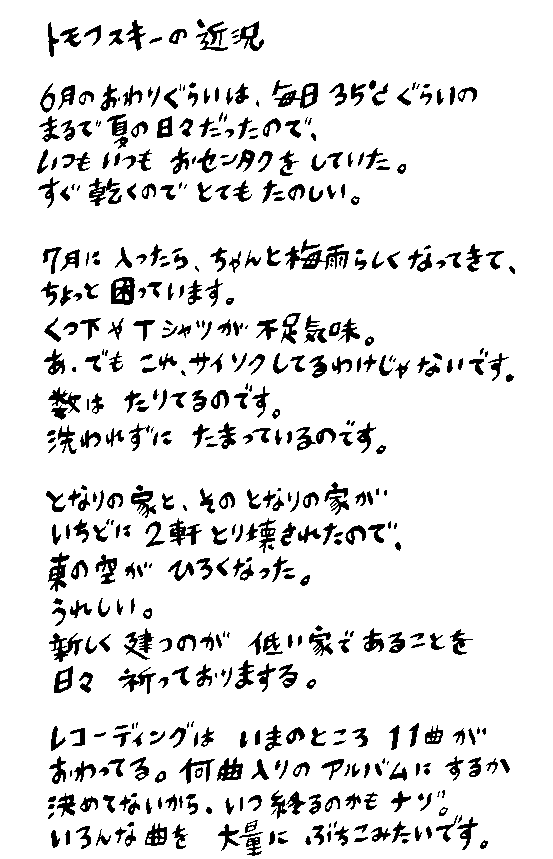 トモフスキーの近況
6月のおわりぐらいは、毎日35℃ぐらいの
まるで夏の日々だったので、
いつもいつも おセンタクをしていた。
すぐ乾くのでとてもたのしい。
7月に入ったら、ちゃんと梅雨らしくなってきて、
ちょっと困っています。
くつ下やTシャツが不足気味。
あ、でもこれ、サイソクしてるわけじゃないです。
数は たりてるのです。
洗われずに たまっているのです。
となりの家と、そのとなりの家が
いちどに2軒とり壊されたので、
東の空が ひろくなった。
うれしい。
新しく建つのが 低い家であることを
日々 祈っておりまする。
レコーディングは いまのところ 11曲が
おわってる。何曲入りのアルバムにするか
決めてないから、いつ終るのかもナゾ。
いろんな曲を 大量に ぶちこみたいです。